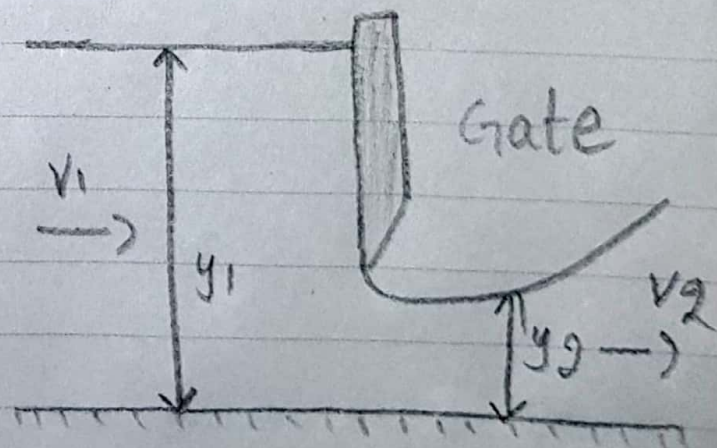 Gate
V1
y1
V2
y2